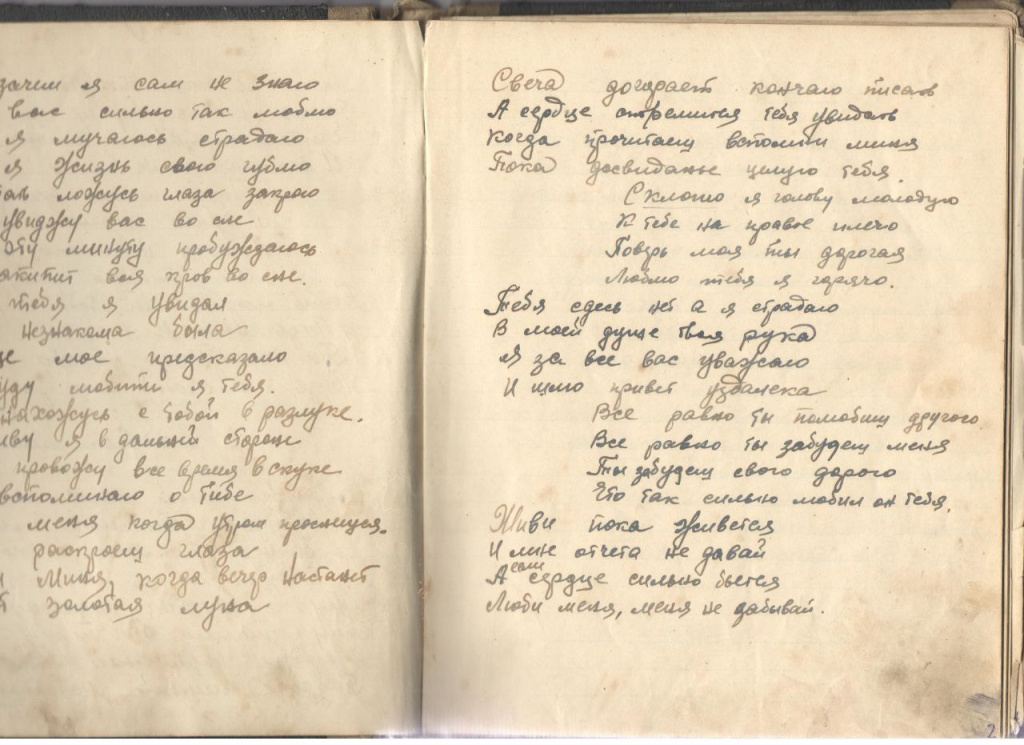 зачем я сам не знаю
вас сильно так люблю
я мучаюсь страдаю
я жизнь свою гублю
ложусь глаза закрою
увиджу вас во сне
эту минуту пробуждаюсь
вся кров во сне.
тебя я увидал
незнакома была
мое предсказало
любити я тебя.
нахожусь с тобой в разлуке.
я в дальней стороне
провожу все время в скуке
вспоминаю о тибе
меня когда утром проснешся.
раскроеш глаза
Миня, когда вечер настанет
золотая луна
Свеча догарает кончаю писать
А сердце стремится тебя увидать
Когда прочитаеш вспомни миня
Пока досвиданье целую тебя.
Склоню я голову молодую
К тебе на правое плечо
Поверь моя ты дорогая
Люблю тебя я горячо.
Тебя сдесь нет а я страдаю
В моей душе твоя рука
Я за все вас уважаю
И шлю привет уздалека
Все равно ты полюбиш другого
Все равно ты забудеш меня
Ты забудеш свого дорого
Что так сильно любил он тебя.
Живи пока живется
И мне отчета не давай
А если сердце сильно бьется
Люби меня, меня не забывай.
2